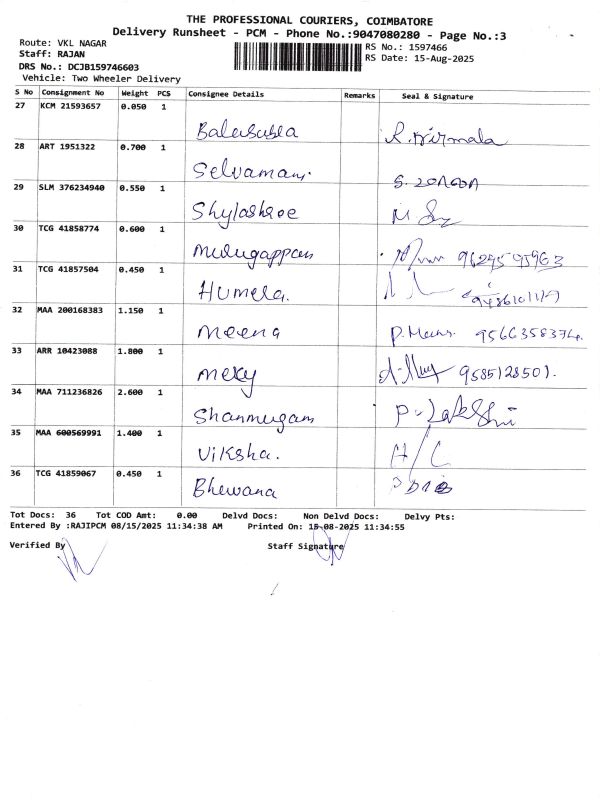 THE PROFESSIONAL COURIERS, COIMBATORE
Delivery Runsheet - PCM - Phone No.:9047080280 - Page No.:3
Route: VKL NAGAR RS No.: 1597466
Staff: RAJAN RS Date: 15-Aug-2025
DRS No.: DCJB159746603
Vehicle: Two Wheeler Delivery
S No Consignment No Weight PCS Consignee Details Remarks Seal & Signature
27 KCM 21593657 0.050 1
R. Nirmala
28 ART 1951322 0.700 1
Selvamani
29 SLM 376234940 0.550 1
Shylashree
30 TCG 41858774 0.600 1
Murugappan 9629595963
31 TCG 41857504 0.450 1
Humera.
32 MAA 200168383 1.150 1
Meena P. Meena 9566358374.
33 ARR 10423088 1.800 1
Mercy 9585128501.
34 MAA 711236826 2.600 1
Shanmugam
35 MAA 600569991 1.400 1
Viksha. H/C
36 TCG 41859067 0.450 1
Bhewana
Tot Docs: 36 Tot COD Amt: 0.00 Delvd Docs: Non Delvd Docs: Delvy Pts:
Entered By :RAJIPCM 08/15/2025 11:34:38 AM Printed On: 15-08-2025 11:34:55
Verified By Staff Signature